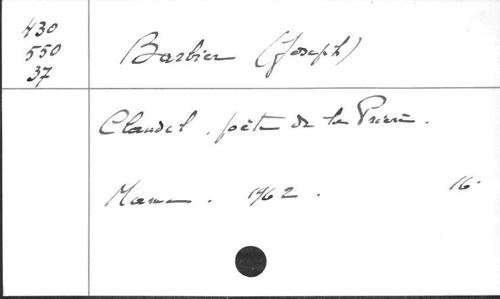 430
550
37
Barbier (Joseph)
Claudel. poète de la Prière.
Mame. 1962. 16.